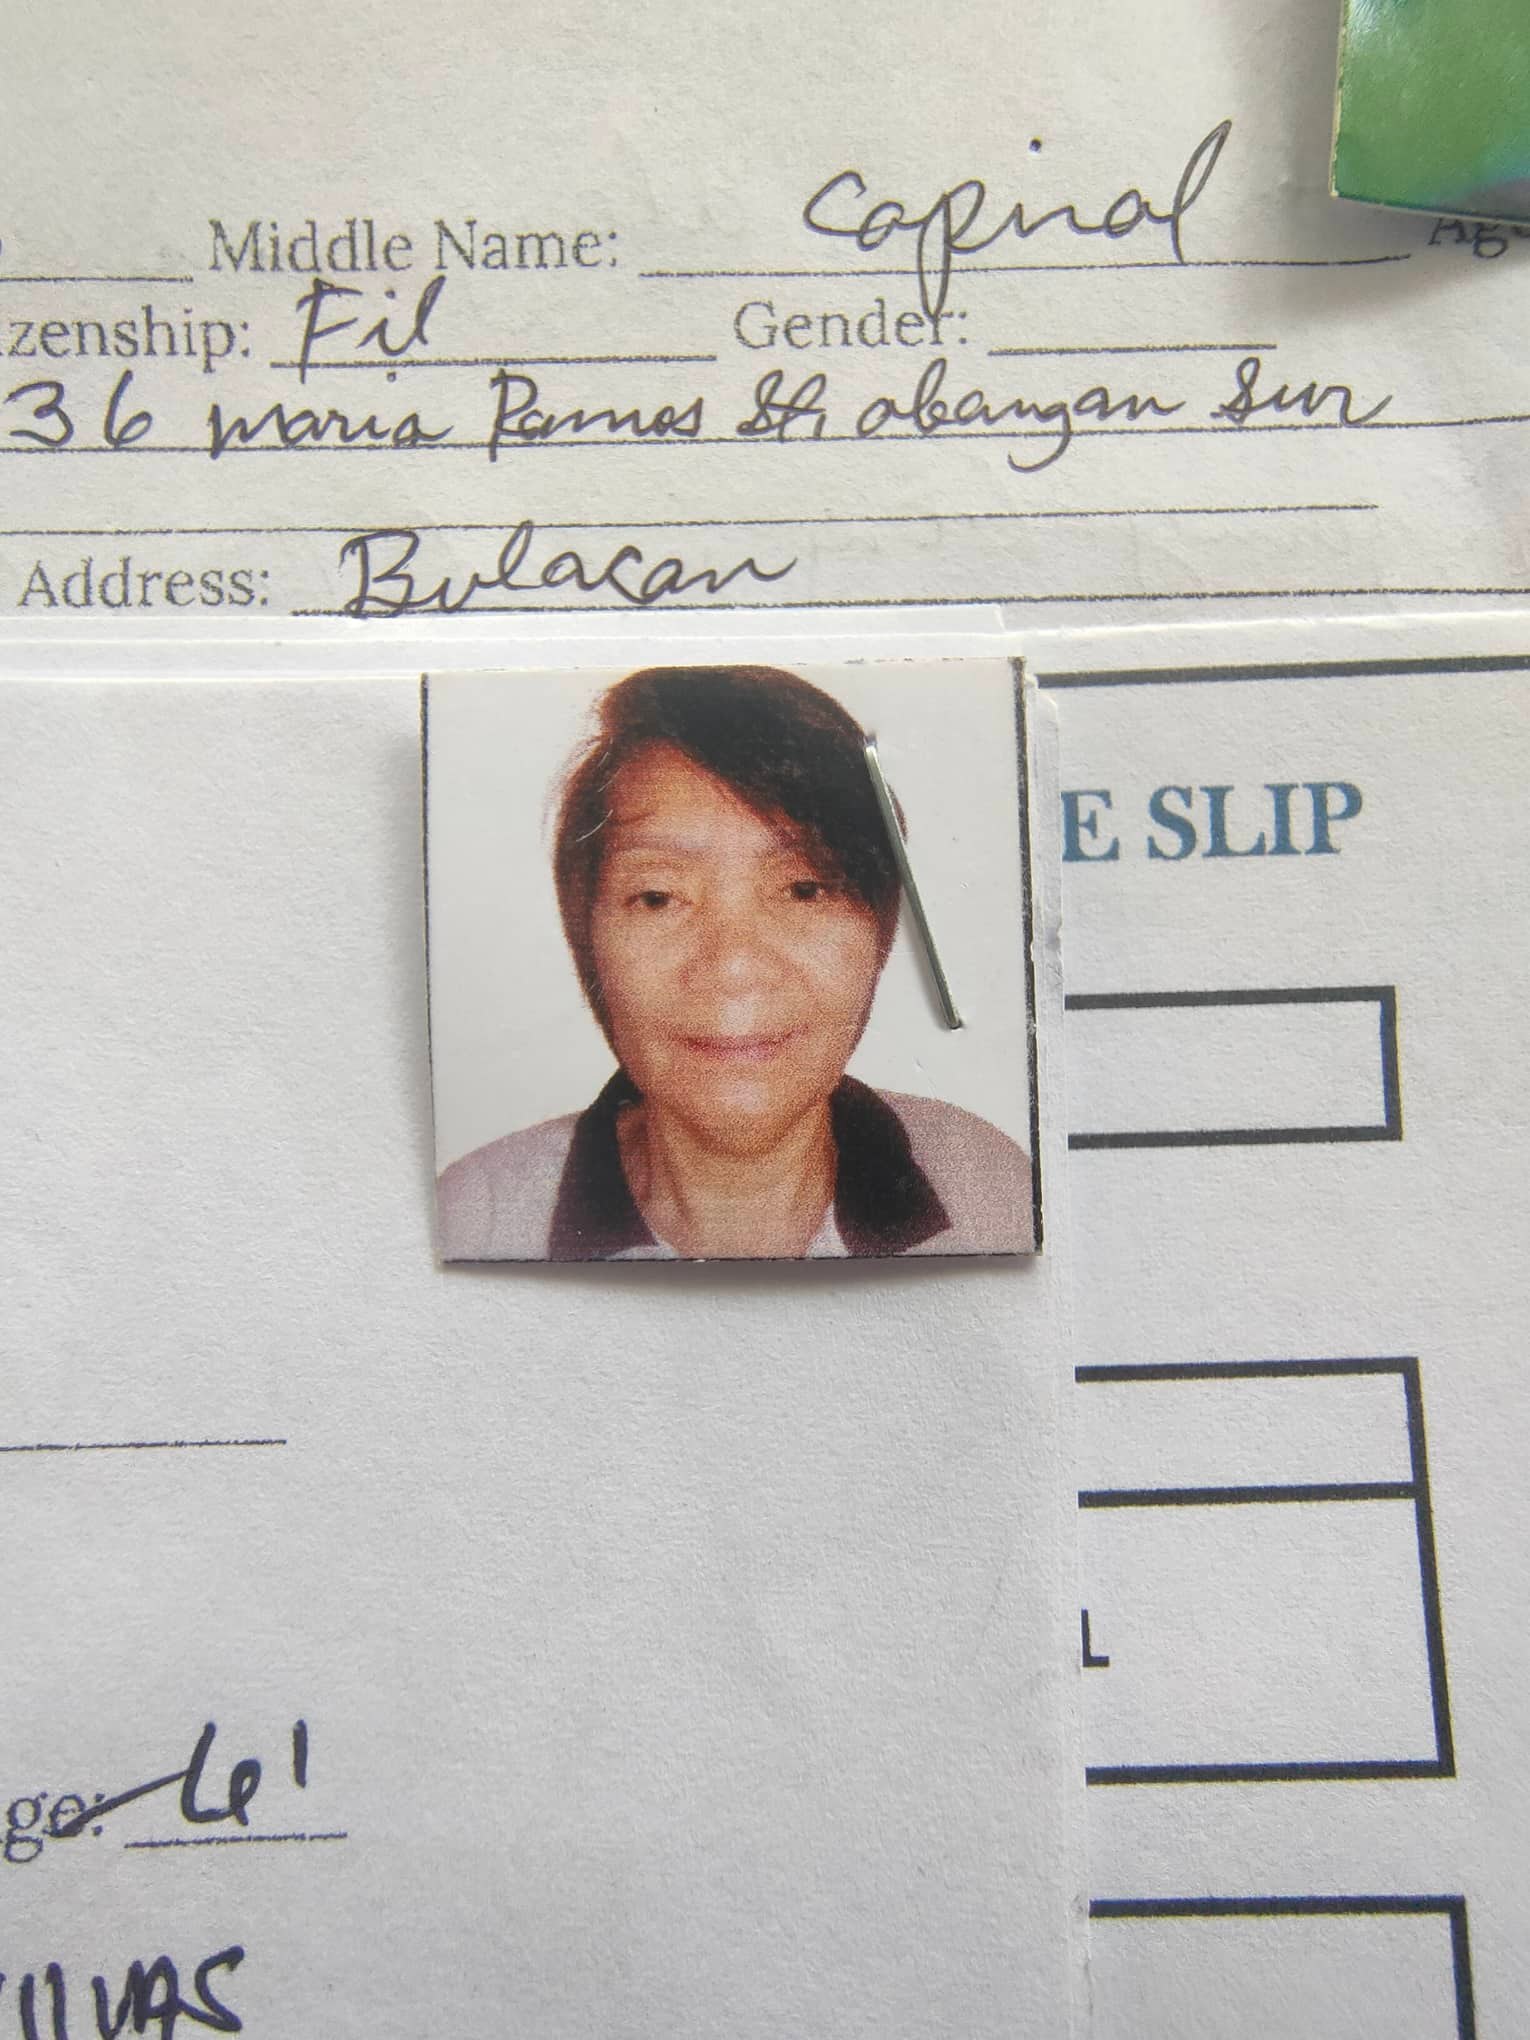 Middle Name: Capinal
izenship: Fil Gender:
36 Maria Ramos St, abangan Sur
Address: Bulacan
E SLIP
L
ge: 61